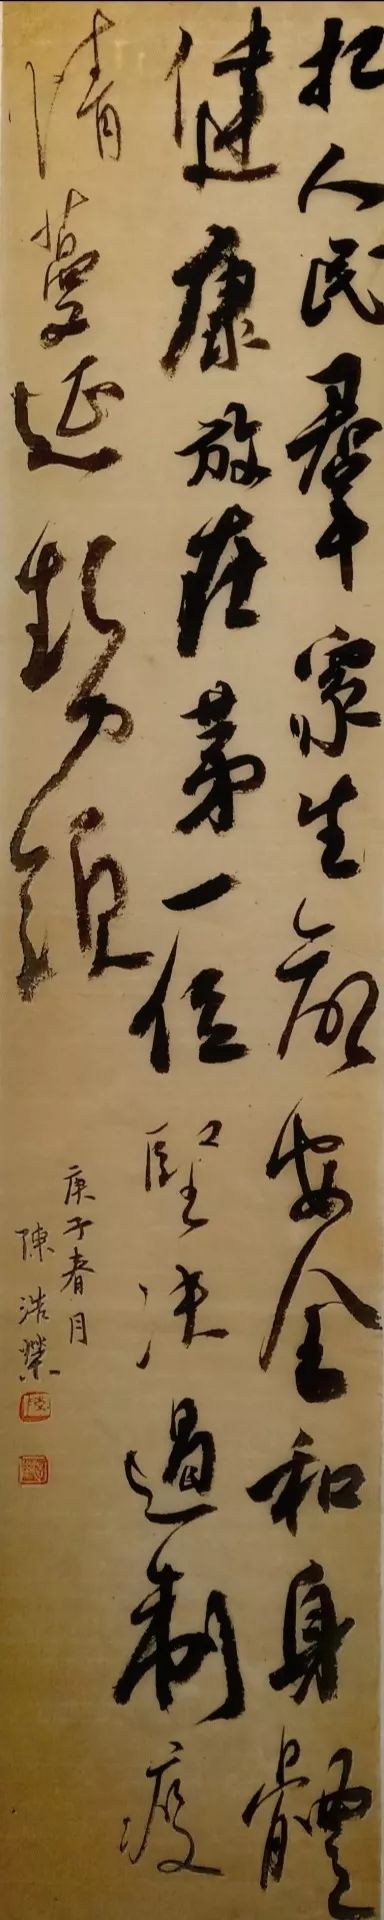 把人民羣眾生命安全和身體
健康放在第一位堅决遏制疫
情蔓延勢頭
庚子春月
陳浩榮